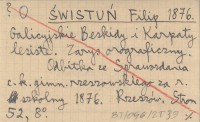 O ŚWISTUŃ Filip 1876.
Galicyjskie Beskidy i Karpaty
lesiste. Zarys orograficzny.
Odbitka ze Sprawozdania
c.k. gimn. rzeszowskiego za r.
szkolny 1876. Rzeszów. Stron
52, 8°.